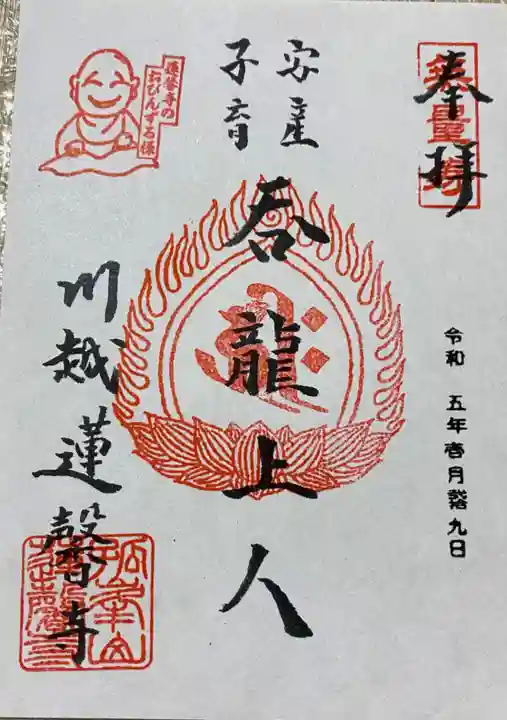 奉拝
無量寿
令和 五年壱月 九日
安産
子育
呑龍上人
蓮馨寺の
おびんずる様
川越蓮馨寺